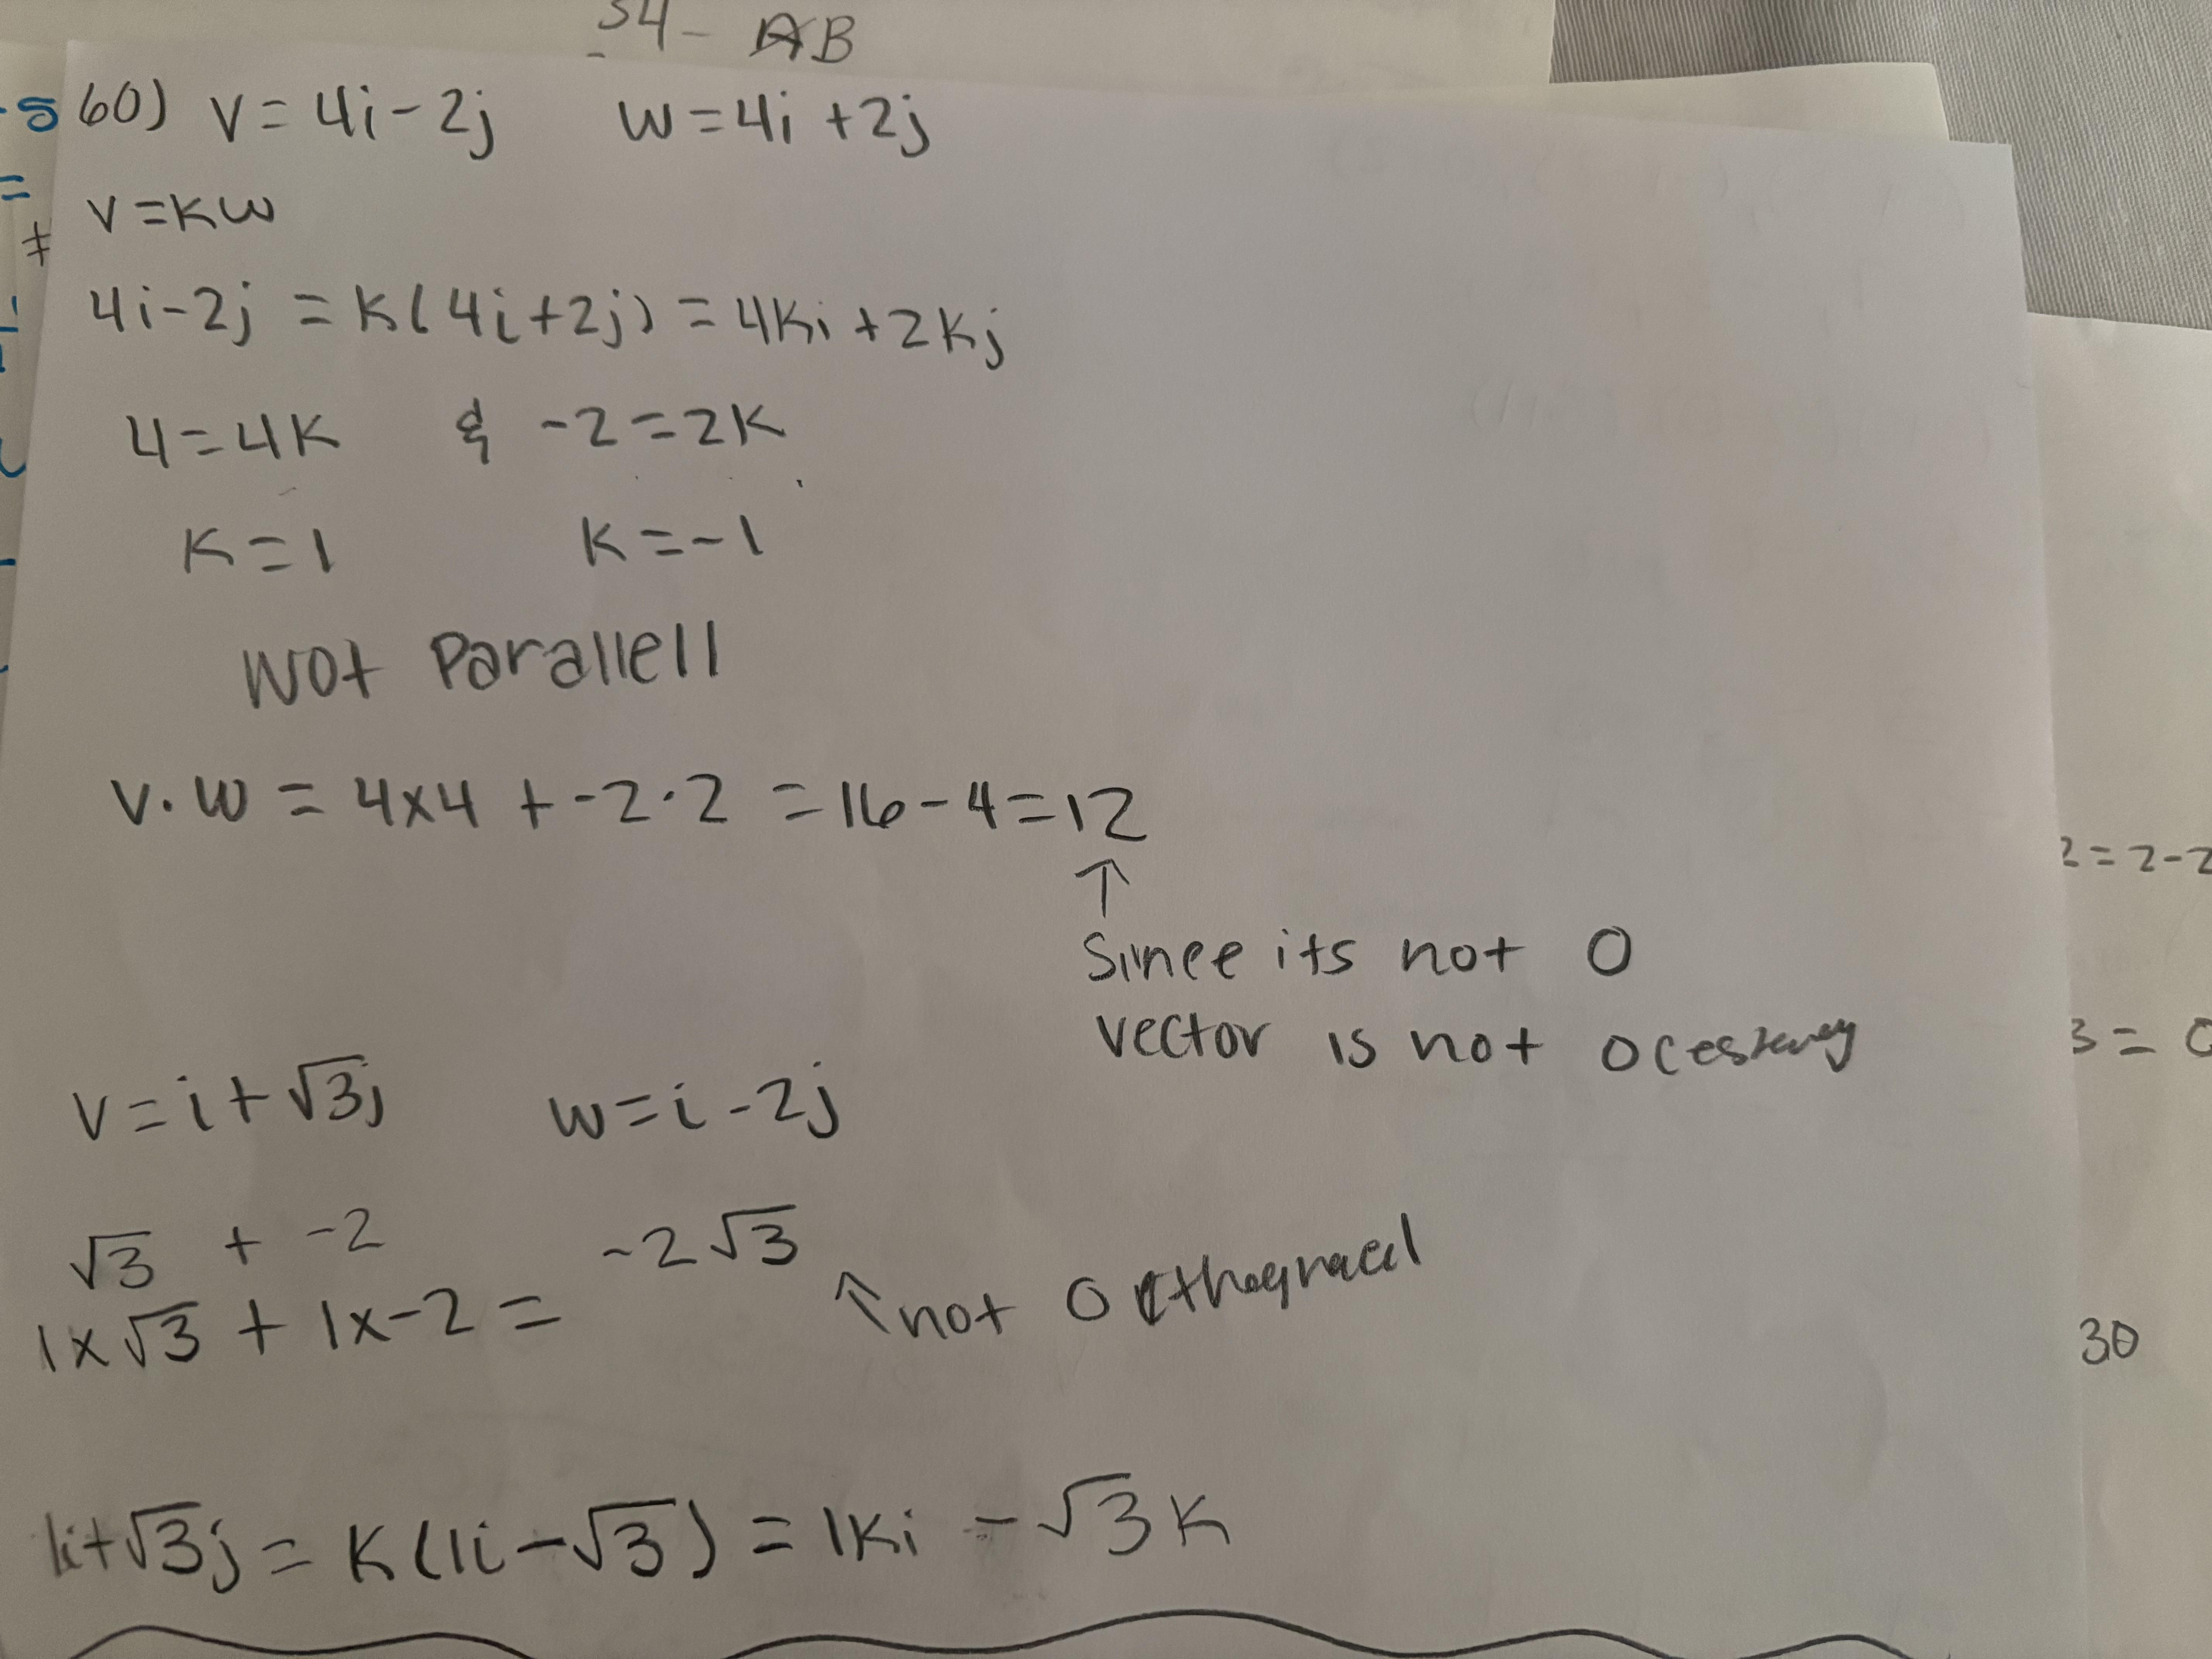 54- AB
60) v = 4i - 2j w = 4i + 2j
v = kw
4i - 2j = k(4i + 2j) = 4ki + 2kj
4 = 4k & -2 = 2k
k = 1 k = -1
Not Parallell
v · w = 4x4 + -2 · 2 = 16 - 4 = 12
↑
Since its not 0
vector is not
v = i + √3j w = i - 2j
√3 + -2
1x√3 + 1x-2 = -2√3
↑ not
1i + √3j = k(1i - √3) = 1ki - √3k
2 = 2 - 2
3 =
30